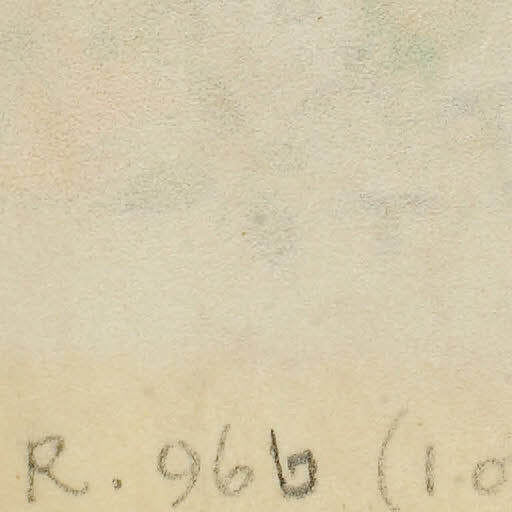 R. 96b (10